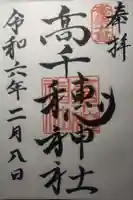 奉拝
高千穂神社
令和六年二月八日